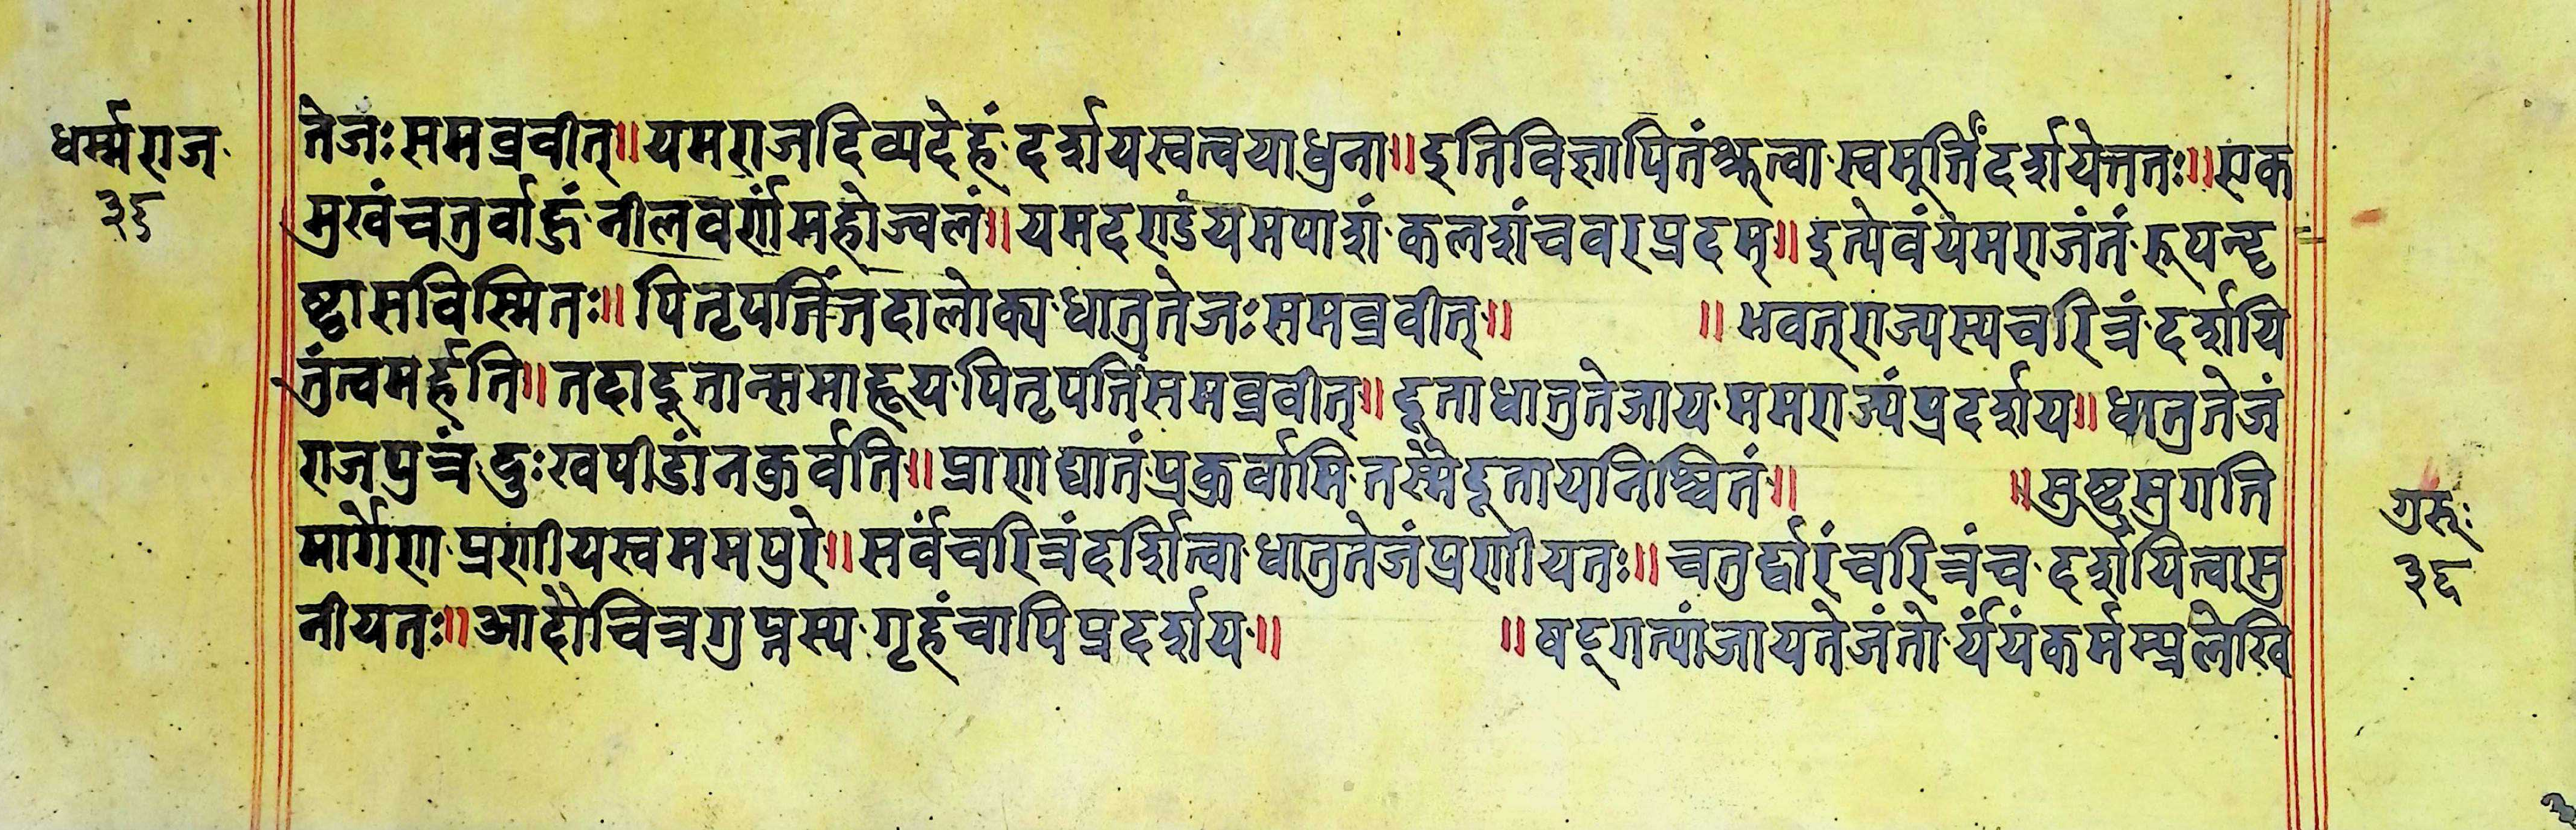 धर्म्मराज
३६
तेजः समब्रवीत्॥ यमराजदिव्यदेहं दर्शायस्वत्वयाधुना॥ इतिविज्ञापितंश्रुत्वा स्वमूर्त्तिंदर्शायेत्ततः॥ एक
मुखंचतुर्वाहुं नीलवर्णंमहोज्वलं॥ यमदण्डंयमपाशं कलशंचवरप्रदम्॥ इत्येवंयमराजंतं रूपन्दृ
ष्ट्वासविस्मितः॥ पितृपतिंतदालोक्य धातुतेजः समब्रवीत्॥ ॥ भवत्राज्यस्यचरित्रं दर्शायि
तुंत्वमर्हति॥ तदादूतान्समाहूय पितृपतिंसमब्रवीत्॥ दूताधातुतेजाय ममराज्यंप्रदर्शाय॥ धातुतेजं
राजपुत्रं दुःखपीडांनकुर्वति॥ प्राणाद्यातंप्रकुर्वामि तस्मैदूतायनिश्चितं॥ ॥ सुष्टुसुगति
मार्गेण प्रणीयस्वममपुरे॥ सर्वंचरित्रंदर्शित्वा धातुतेजंप्रणीयतः॥ चतुर्द्वारंचरित्रंच दर्शायित्वासु
नीयतः॥ आदौचित्रगुप्तस्य गृहंचापिप्रदर्शाय॥ ॥ षड्गत्यांजायतेजंतो र्यंयंकर्मम्प्रलेखि
गुरूः
३६